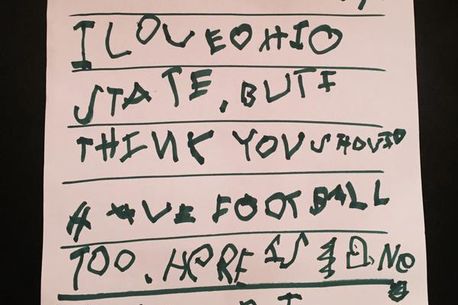 I LOVE OHIO
STATE, BUT I
THINK YOU SHOULD
HAVE FOOTBALL
TOO. HORE IS